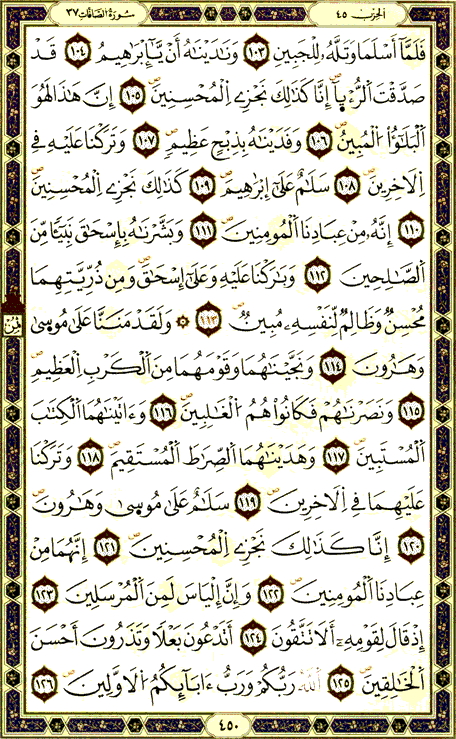 الحزب ٤٥
سورة الصافات ٣٧
فَلَمَّآ أَسْلَمَا وَتَلَّهُۥ لِلْجَبِينِ ١٠٣ وَنَٰدَيْنَٰهُ أَنْ يَّٰٓإِبْرَٰهِيمُ ١٠٤ قَدْ
صَدَّقْتَ اَ۬لرُّءْي۪آ إِنَّا كَذَٰلِكَ نَجْزِے اِ۬لْمُحْسِنِينَ ١٠٥ إِنَّ هَٰذَا لَهُوَ
اَ۬لْبَلَٰٓؤُاْ اُ۬لْمُبِينُ ١٠٦ وَفَدَيْنَٰهُ بِذِبْحٍ عَظِيمٍ ١٠٧ وَتَرَكْنَا عَلَيْهِ فِے
اِ۬لَاخِرِينَ ١٠٨ سَلَٰمٌ عَلَىٰٓ إِبْرَٰهِيمَ ١٠٩ كَذَٰلِكَ نَجْزِے اِ۬لْمُحْسِنِينَ
١١٠ إِنَّهُۥ مِنْ عِبَادِنَا اَ۬لْمُومِنِينَ ١١١ وَبَشَّرْنَٰهُ بِإِسْحَٰقَ نَبِيٓـٔاً مِّنَ
اَ۬لصَّٰلِحِينَ ١١٢ وَبَٰرَكْنَا عَلَيْهِ وَعَلَىٰٓ إِسْحَٰقَ وَمِن ذُرِّيَّتِهِمَا
مُحْسِنٌ وَظَالِمٌ لِّنَفْسِهِۦ مُبِينٌ ١١٣ ۞ وَلَقَدْ مَنَنَّا عَلَىٰ مُوس۪ىٰ
ثمن
وَهَٰرُونَ ١١٤ وَنَجَّيْنَٰهُمَا وَقَوْمَهُمَا مِنَ اَ۬لْكَرْبِ اِ۬لْعَظِيمِ
١١٥ وَنَصَرْنَٰهُمْ فَكَانُواْ هُمُ اُ۬لْغَٰلِبِينَ ١١٦ وَءَاتَيْنَٰهُمَا اَ۬لْكِتَٰبَ
اَ۬لْمُسْتَبِينَ ١١٧ وَهَدَيْنَٰهُمَا اَ۬لصِّرَٰطَ اَ۬لْمُسْتَقِيمَ ١١٨ وَتَرَكْنَا
عَلَيْهِمَا فِے اِ۬لَاخِرِينَ ١١٩ سَلَٰمٌ عَلَىٰ مُوس۪ىٰ وَهَٰرُونَ
١٢٠ إِنَّا كَذَٰلِكَ نَجْزِے اِ۬لْمُحْسِنِينَ ١٢١ إِنَّهُمَا مِنْ
عِبَادِنَا اَ۬لْمُومِنِينَ ١٢٢ وَإِنَّ إِلْيَاسَ لَمِنَ اَ۬لْمُرْسَلِينَ ١٢٣
إِذْ قَالَ لِقَوْمِهِۦٓ أَلَا تَتَّقُونَ ١٢٤ أَتَدْعُونَ بَعْلاً وَتَذَرُونَ أَحْسَنَ
اَ۬لْخَٰلِقِينَ ١٢٥ اَ۬للَّهُ رَبُّكُمْ وَرَبُّ ءَابَآئِكُمُ اُ۬لَاوَّلِينَ ١٢٦
٤٥٠